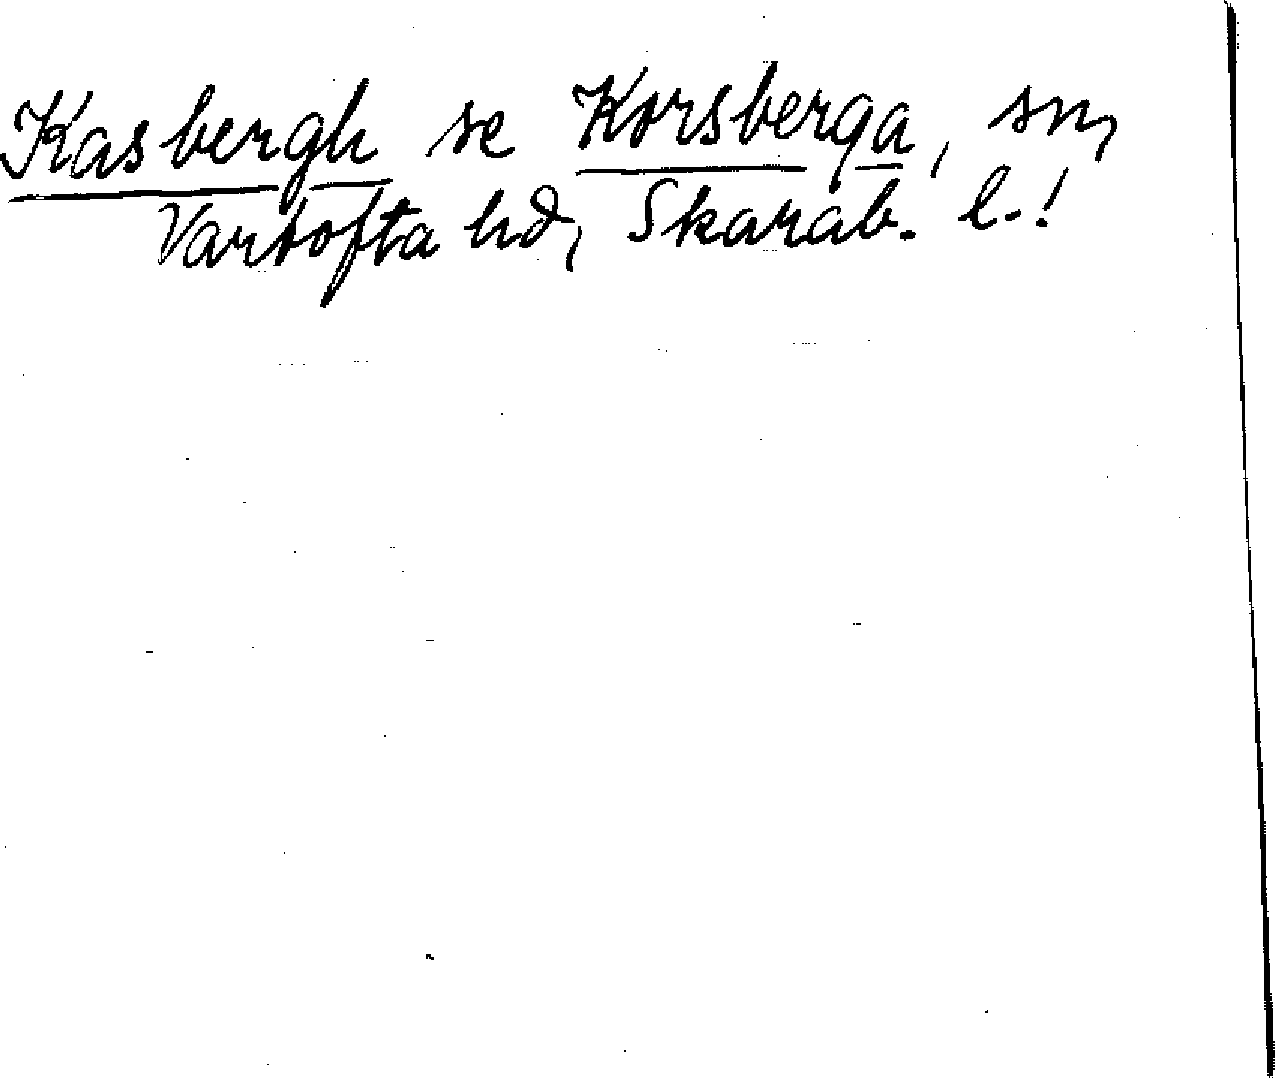 Kasbergh se Korsberga, sn,
Vartofta hd, Skarab. l.!